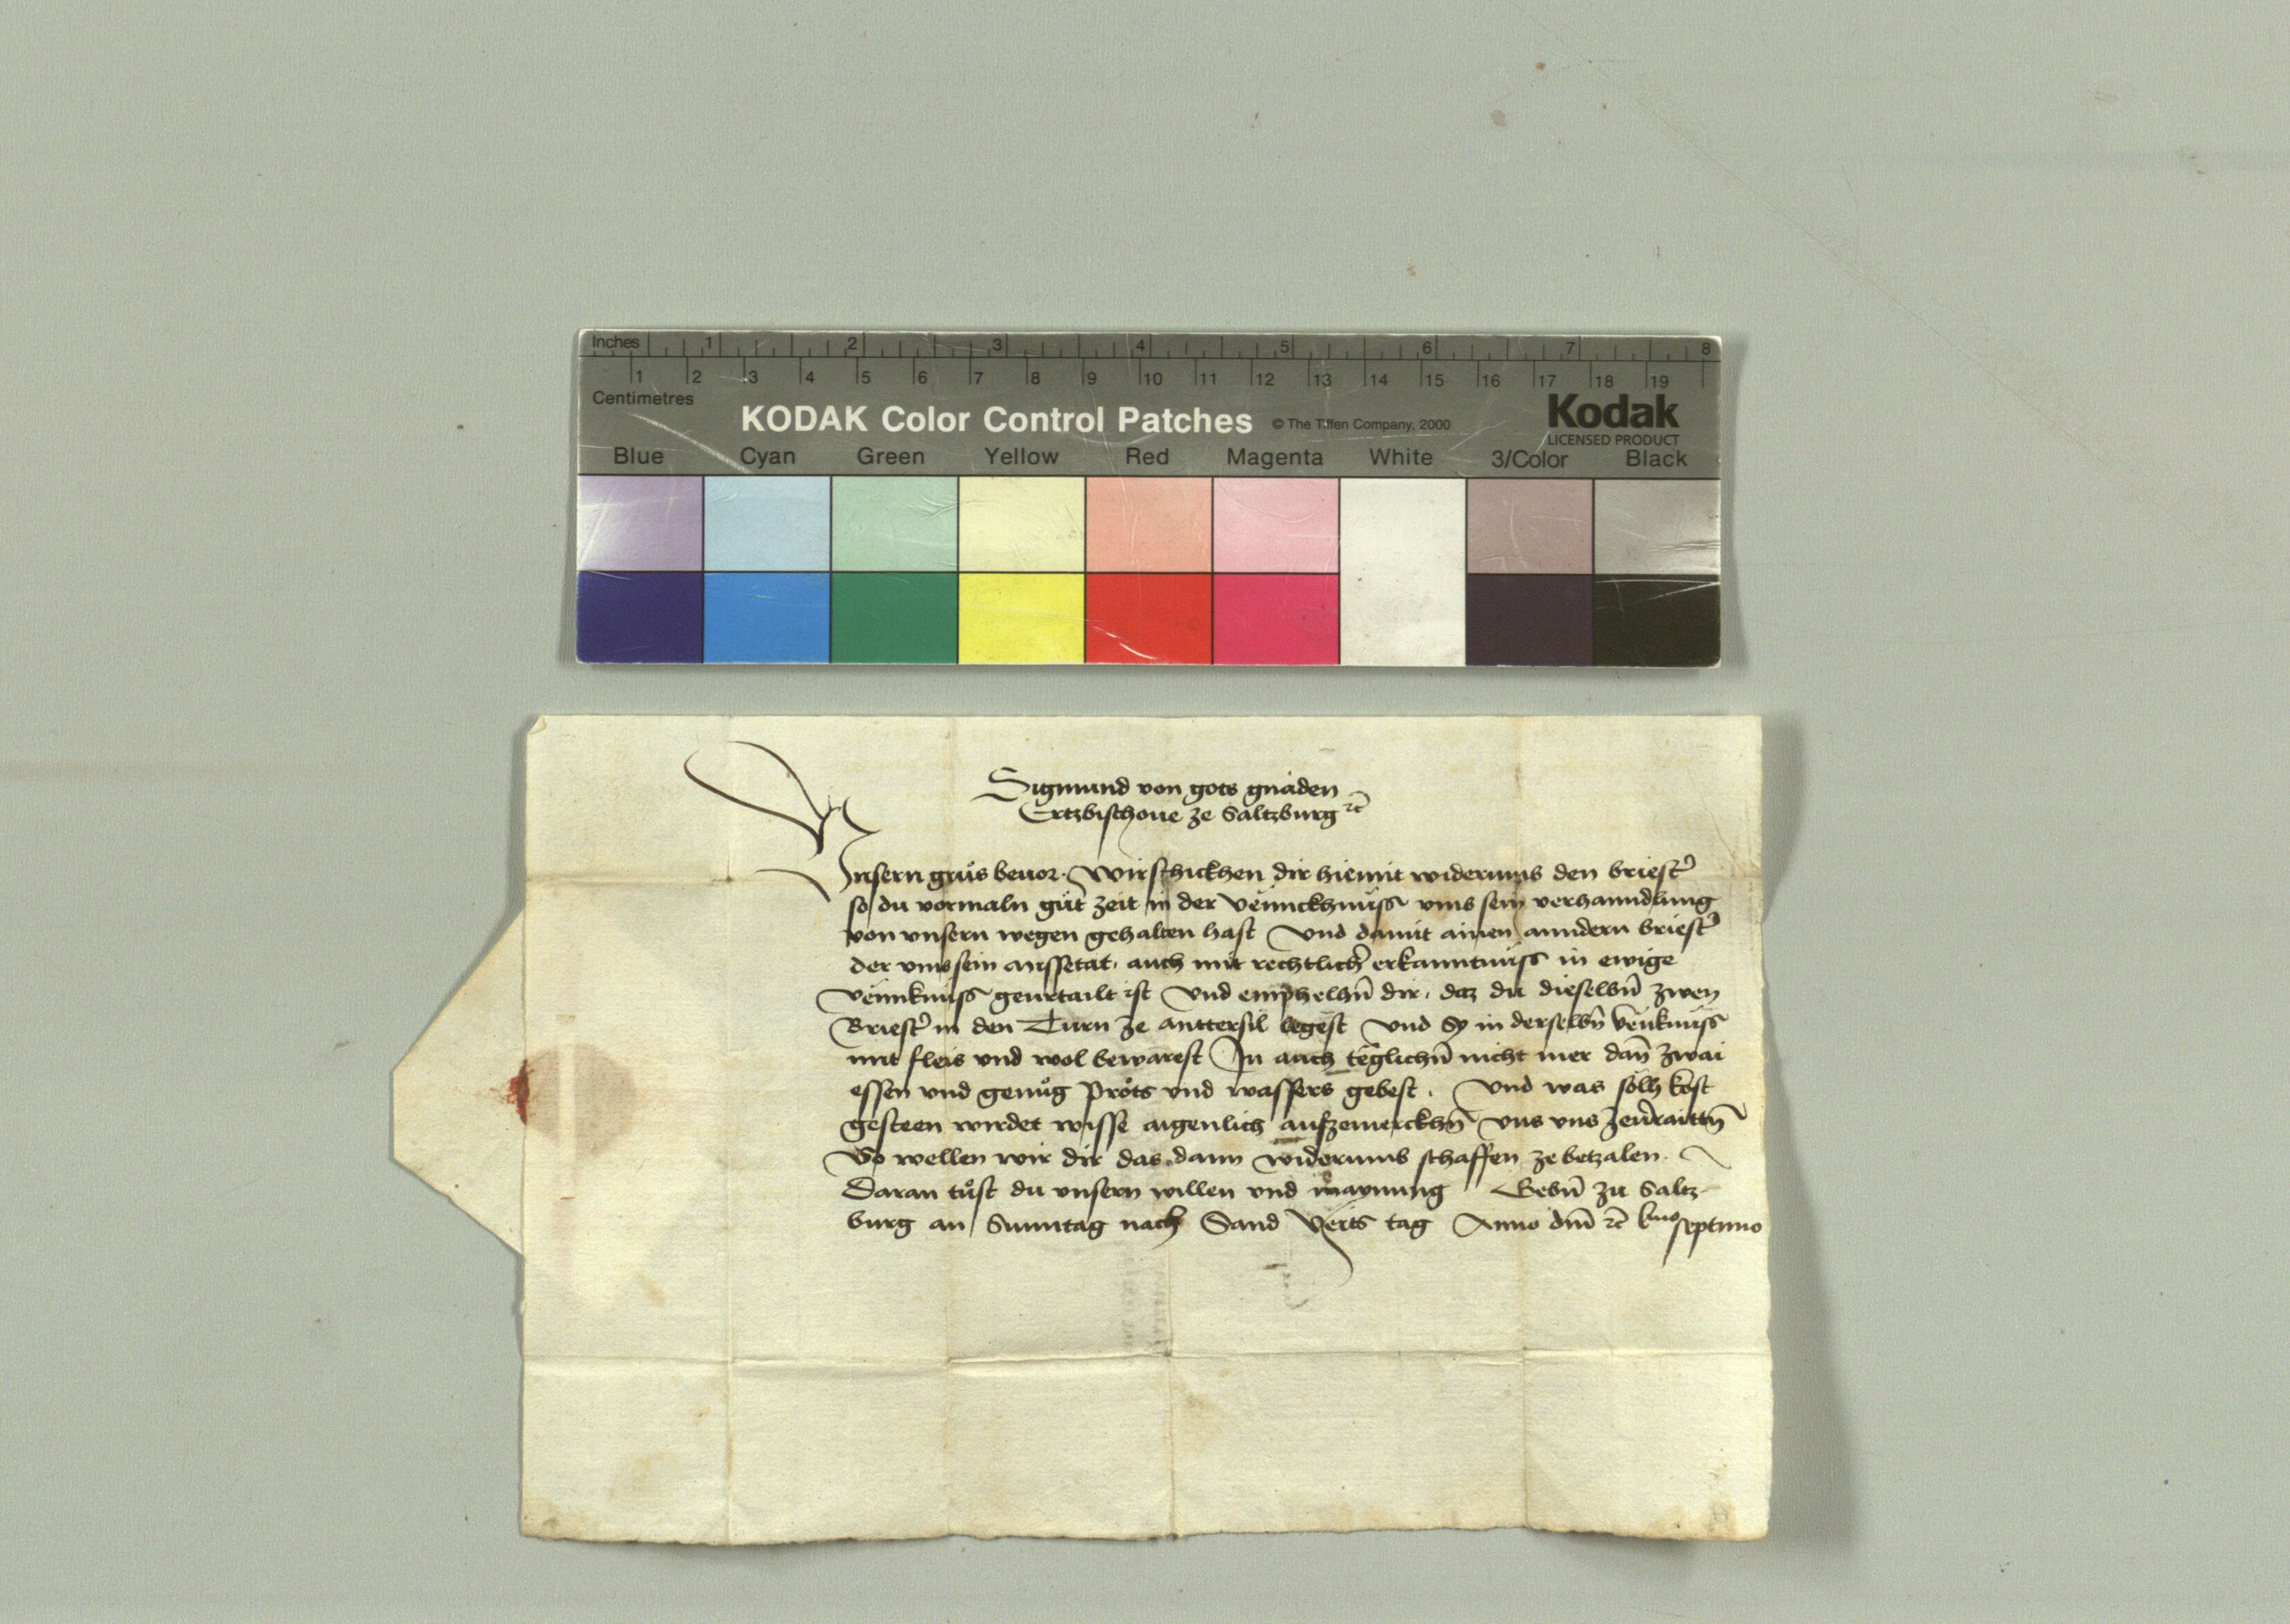 Inches 1 2 3 4 5 6 7 8
1 2 3 4 5 6 7 8 9 10 11 12 13 14 15 16 17 18 19
Centimetres
KODAK Color Control Patches © The Tiffen Company, 2000 Kodak
LICENSED PRODUCT
Blue Cyan Green Yellow Red Magenta White 3/Color Black
Sigmund von gots gnaden
Ertzbischoue ze Saltzburg ꝛc̄
Vnsern grůs beuor. Wir schickhen dir hiemit widerumb den briest̉
so du vormaln gůt zeit in der vennckhnuss vmb sein verhanndlung
von vnsern wegen gehalten hast Vnd damit ainen anndern briest̉
der vmb sein missetat, auch mit rechtlich̉ erkanntnuss in ewige
vennknuss geurtailt ist Vnd emphelhn̄ dir, daz du dieselbn̄ zwen
Briest̉ in den Turn ze anttersil legest Vnd Sy in derselbn̄ venknuss
mit fleis vnd wol bewarest In auch teglichn̄ nicht mer dan̄ zwai
essen vnd genůg prots vnd wassers gebest. Vnd was solh kost
gesteen wirdet wisse aigenlich aufzemerckhn̄ Vns vns zeuerraittn̄
So wellen wir dir das dann widerumb schaffen ze betzalen.
Daran tůst du vnsern willen vnd maynung Gebn̄ zu Saltz-
burg an Sunntag nach Sand Veits tag Anno dn̄i ꝛc̄ lmo septimo